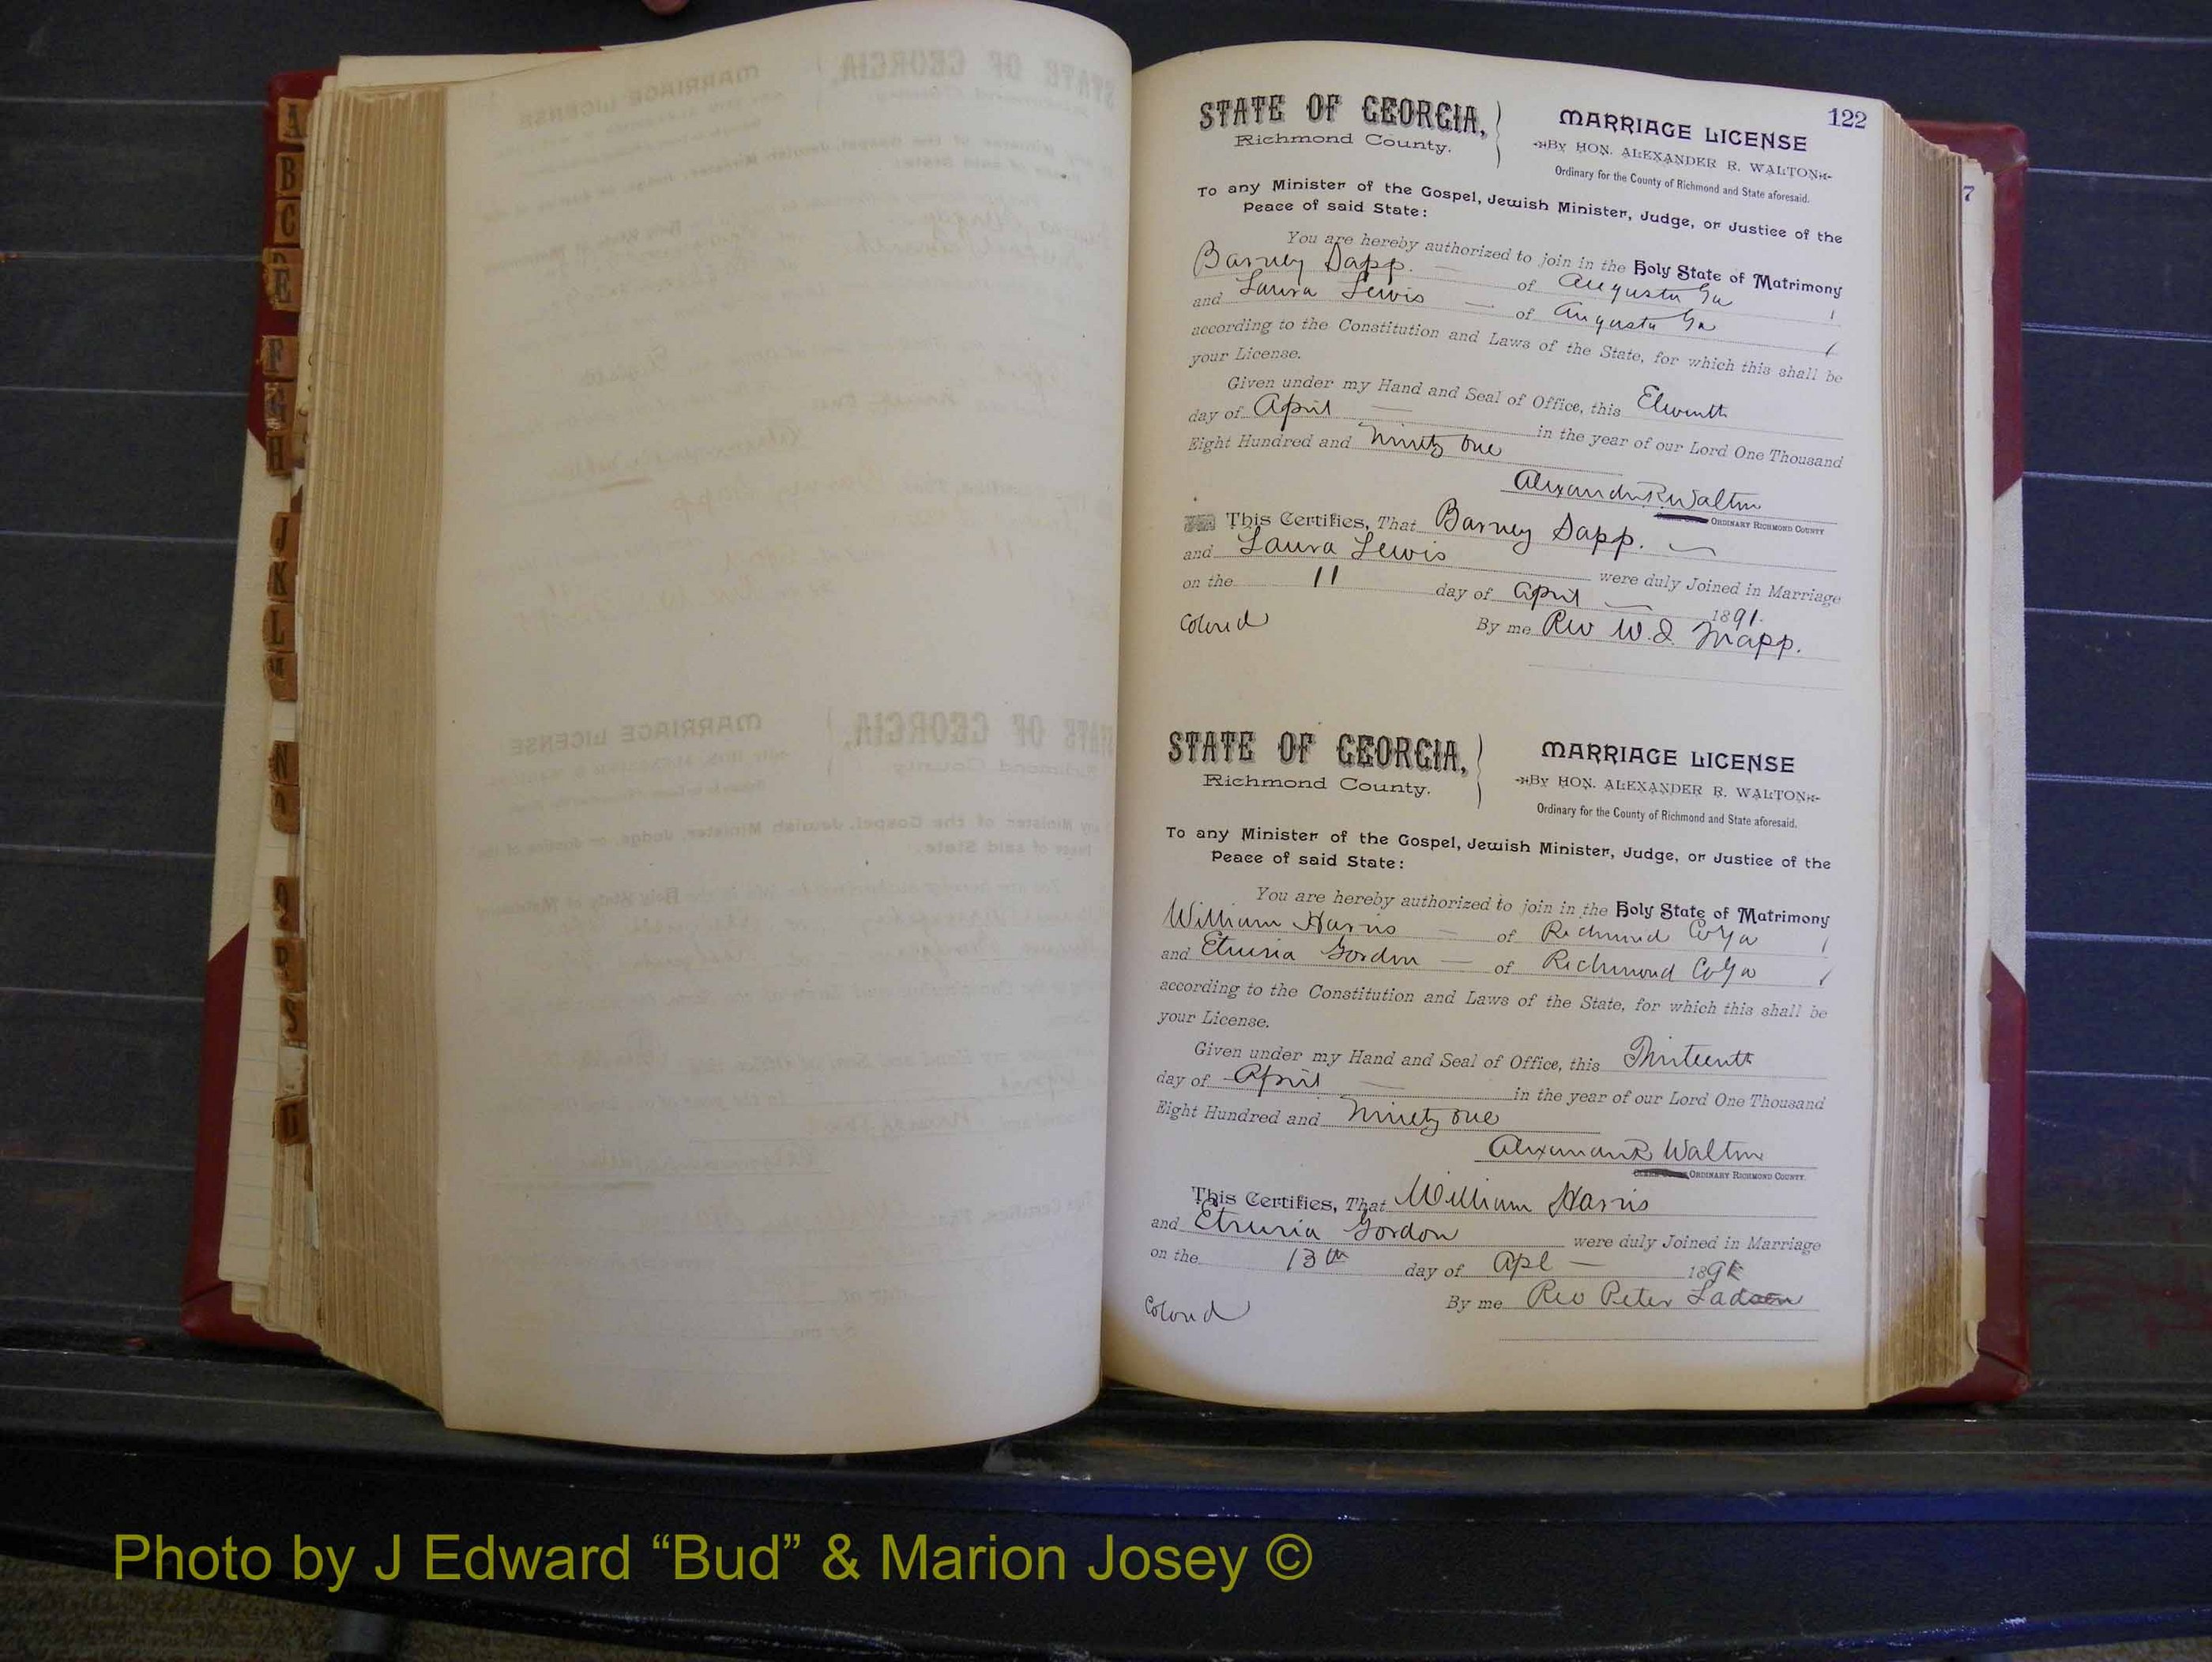 A
B
C
E
F
G
H
J
K
L
M
N
P
R
S
122
7
STATE OF GEORGIA,
Richmond County.
MARRIAGE LICENSE
BY HON. ALEXANDER R. WALTON
Ordinary for the County of Richmond and State aforesaid.
To any Minister of the Gospel, Jewish Minister, Judge, or Justice of the
Peace of said State:
You are hereby authorized to join in the Holy State of Matrimony
Barney Sapp. of Augusta Ga
and Laura Lewis of Augusta Ga
according to the Constitution and Laws of the State, for which this shall be
your License.
Given under my Hand and Seal of Office, this Eleventh
day of April in the year of our Lord One Thousand
Eight Hundred and Ninety One
Alexander R. Walton
ORDINARY RICHMOND COUNTY
This Certifies, That Barney Sapp.
and Laura Lewis were duly Joined in Marriage
on the 11 day of April 1891.
Colored By me Rev W. D. Mapp.
STATE OF GEORGIA,
Richmond County.
MARRIAGE LICENSE
BY HON. ALEXANDER R. WALTON
Ordinary for the County of Richmond and State aforesaid.
To any Minister of the Gospel, Jewish Minister, Judge, or Justice of the
Peace of said State:
You are hereby authorized to join in the Holy State of Matrimony
William Harris of Richmond Co Ga
and Etruria Gordon of Richmond Co Ga
according to the Constitution and Laws of the State, for which this shall be
your License.
Given under my Hand and Seal of Office, this Thirteenth
day of April in the year of our Lord One Thousand
Eight Hundred and Ninety One
Alexander R Walton
ORDINARY RICHMOND COUNTY.
This Certifies, That William Harris
and Etruria Gordon were duly Joined in Marriage
on the 13th day of Apl 189
Colored By me Rev Peter Ladson
Photo by J Edward “Bud” & Marion Josey ©